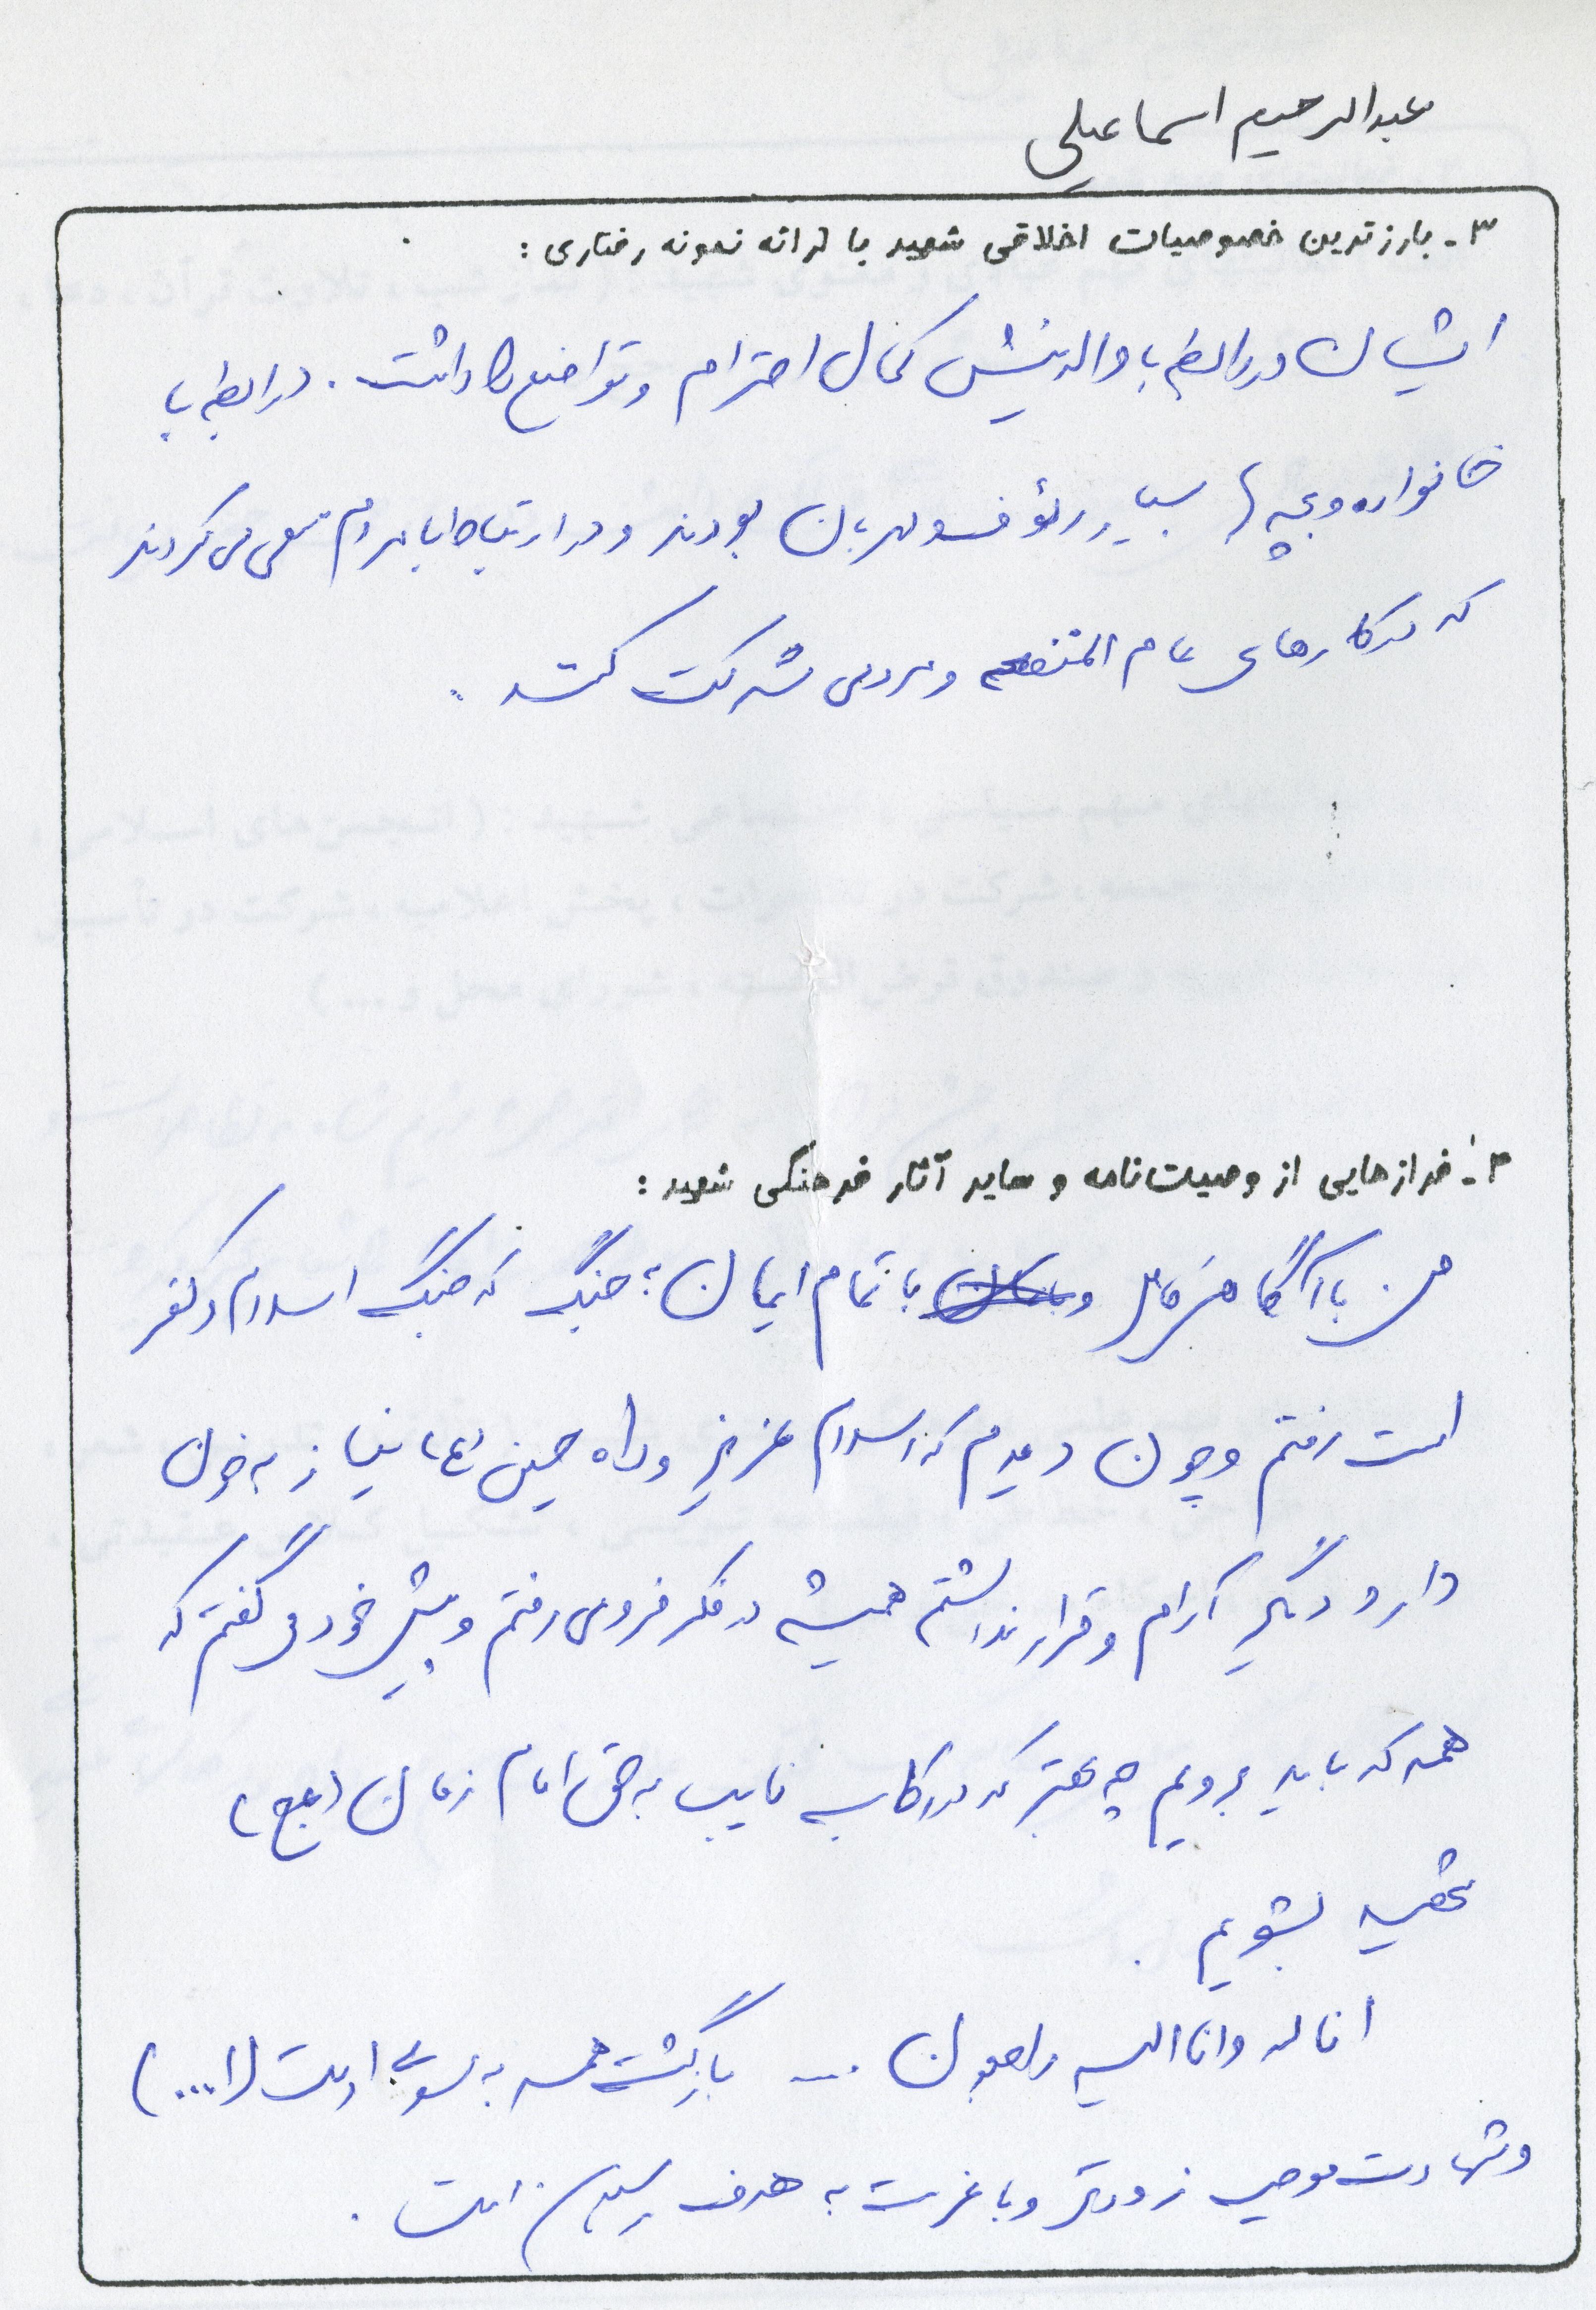 عبدالرحیم اسماعیلی
۳- بارزترین خصوصیات اخلاقی شهید با ارائه نمونه رفتاری :
ایشان در رابطه با والدینش کمال احترام و تواضع را داشت . در رابطه با
خانواده و بچه ها بسیار رئوف و مهربان بودند و در ارتباط با مردم سعی می کردند
که در کارهای عام المنفعه و مردمی شرکت کنند .
۴- فرازهایی از وصیت‌نامه و سایر آثار فرهنگی شهید :
من با آگاهی کامل و با تمام ایمان به جنگ که جنگ اسلام و کفر
است رفتم و چون دیدم که اسلام عزیز و راه حسین (ع) نیاز به خون
دارد دیگر آرام و قرار نداشتم همیشه در فکر فرو می رفتم و پیش خود می گفتم که
همه که باید برویم چه بهتر که در رکاب نایب به حق امام زمان (عج)
شهید بشویم .
انا لله و انا الیه راجعون ... بازگشت همه به سوی اوست (ا...)
و شهادت موجب زودتر و با عزت به هدف رسیدن است .